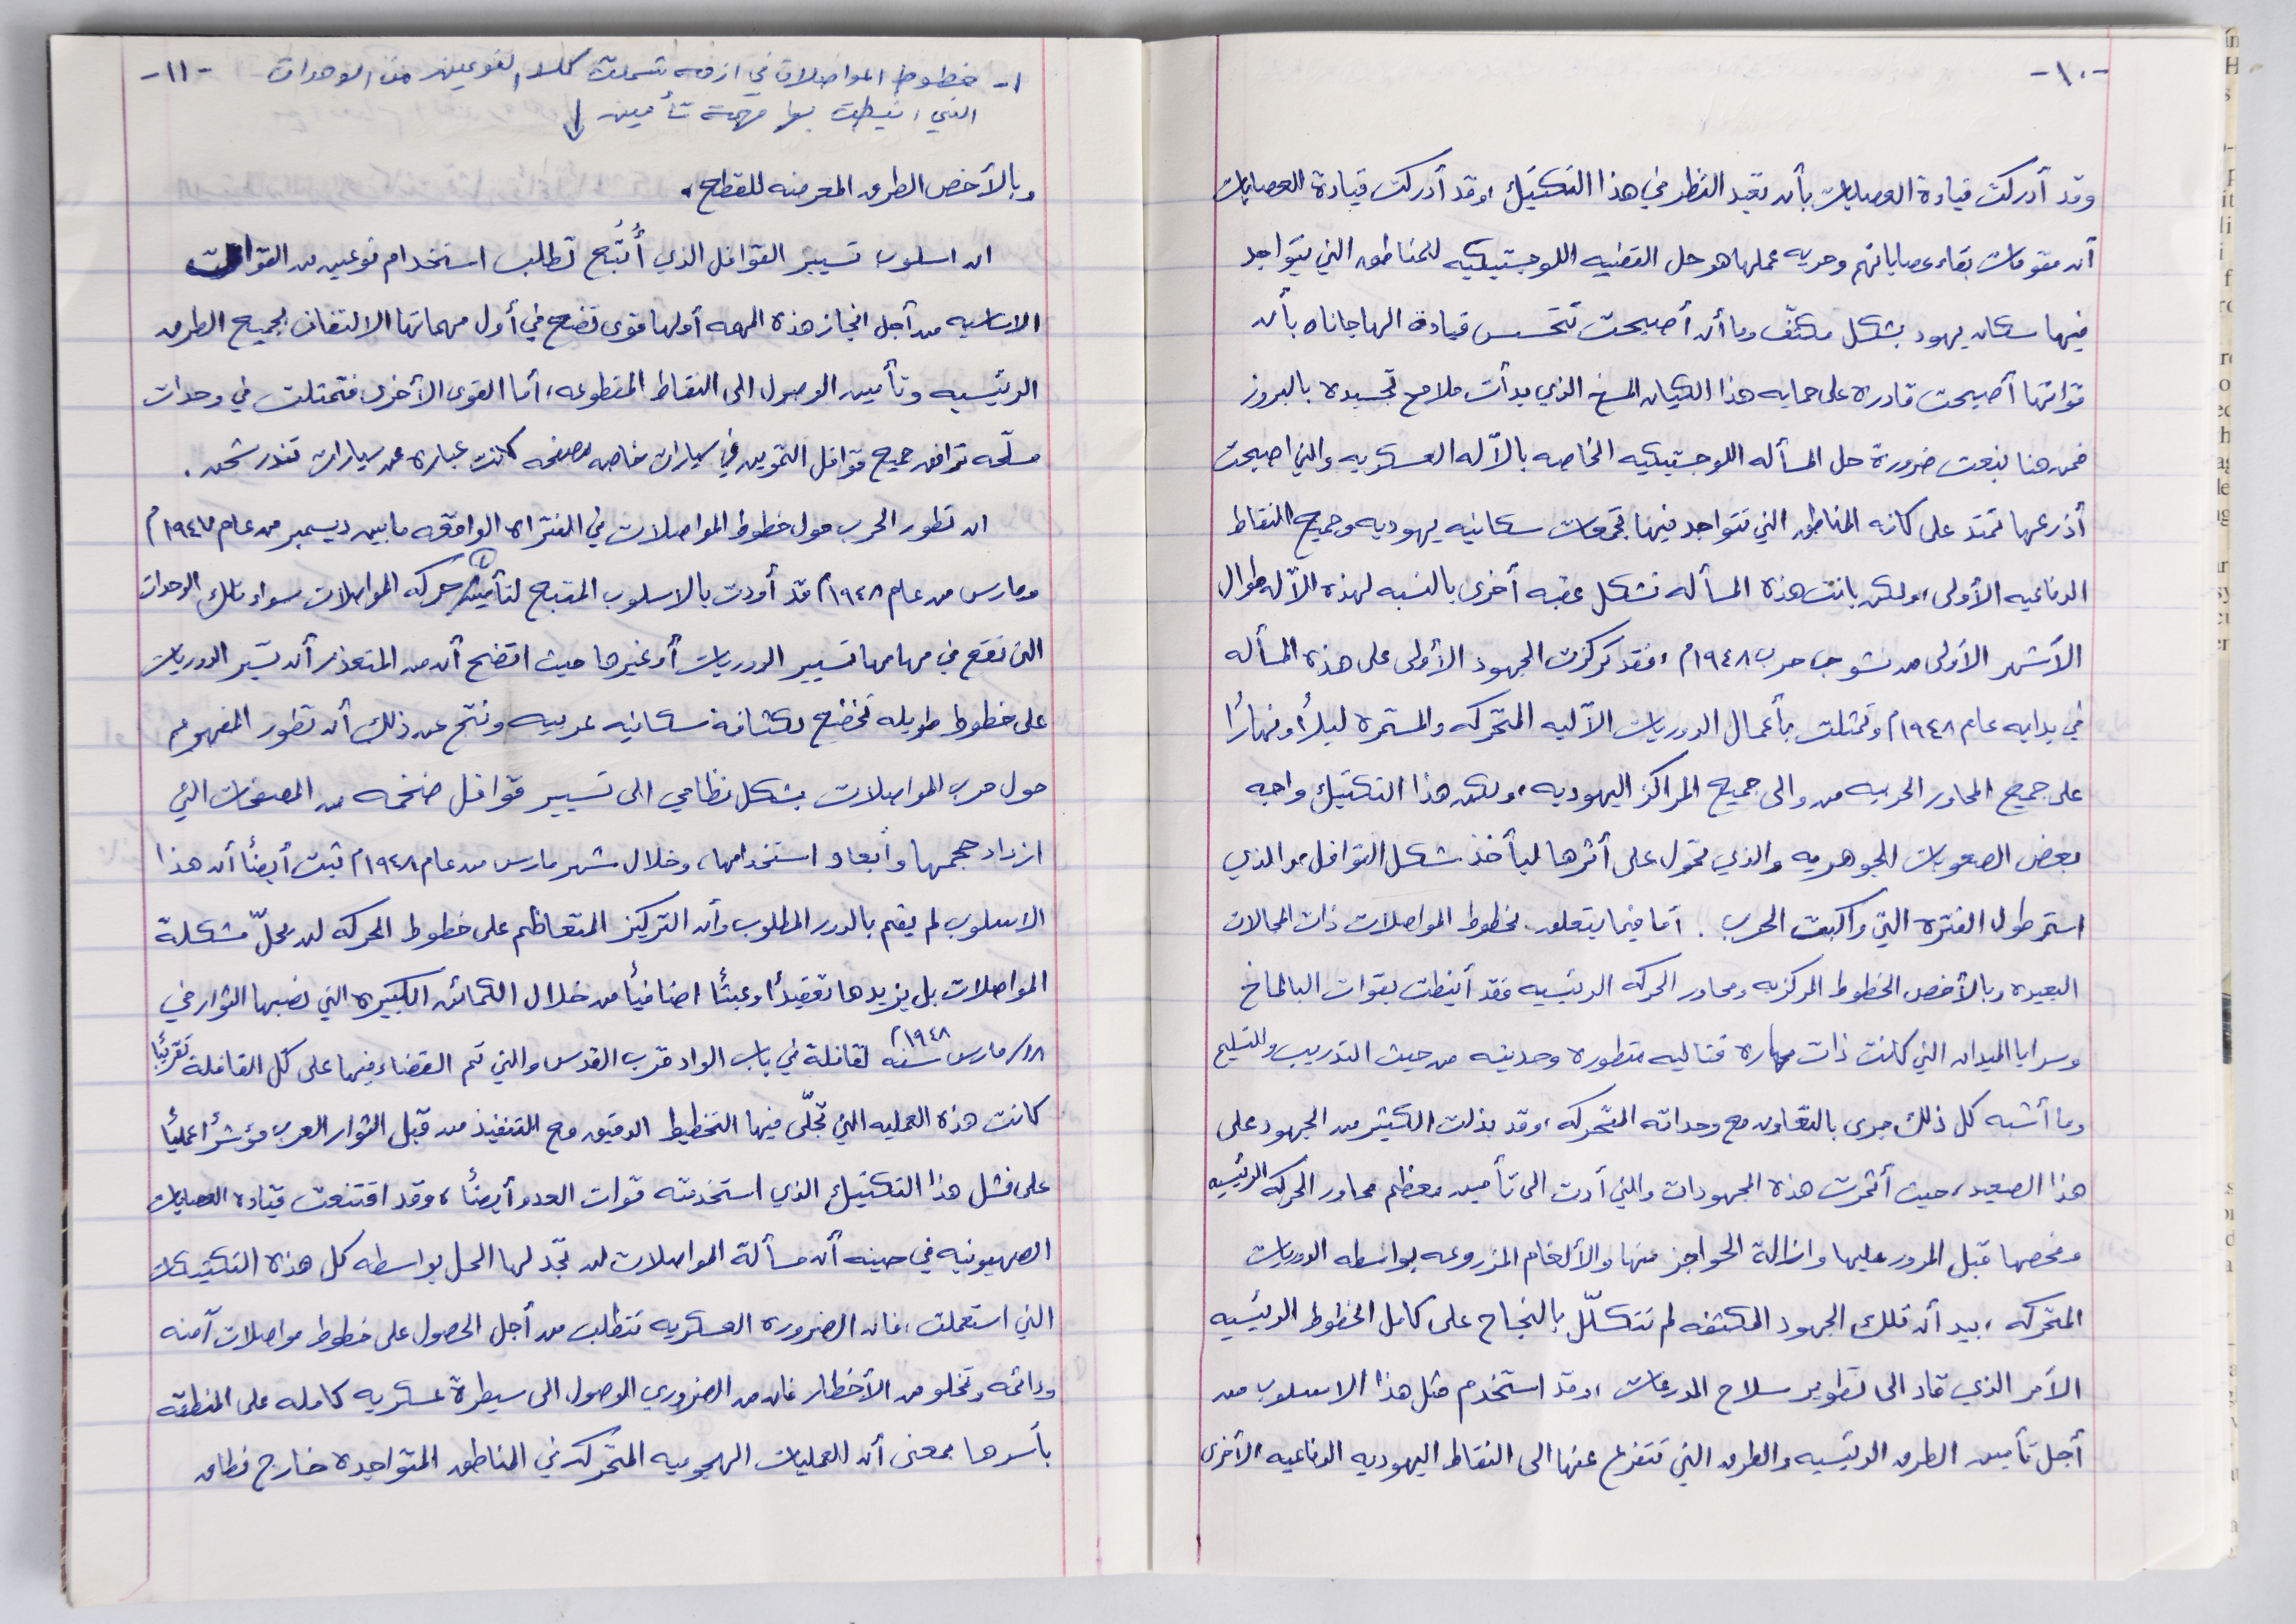 -١٠-
وقد أدركت قيادة العصابات بأن تعيد النظر في هذا التكتيك، وقد أدركت قيادة العصابات
أن مقومات بقاء عصاباتهم وحريه عملها هو حل القضيه اللوجستيكيه للمناطق التي يتواجد
فيها سكان يهود بشكل مكثّف وما أن أصبحت تتحسس قيادة الهاجاناه بأن
قواتها أصبحت قادره على حمايه هذا الكيان المسخ الذي بدأت ملامح تجسيده بالبروز
فمن هنا نبعت ضرورة حل المسأله اللوجستيكيه الخاصه بالآله العسكريه والتي اصبحت
أذرعها تمتد على كافه المناطق التي تتواجد فيها تجمعات سكانيه يهوديه وجميع النقاط
الدفاعيه الأولى، ولكن باتت هذه المسأله تشكل عقبه أخرى بالنسبه لهذه الآله طوال
الأشهر الأولى من نشوب حرب ١٩٤٨م، فقد تركزت الجهود الأولى على هذه المسأله
في بدايه عام ١٩٤٨م وتمثلت بأعمال الدوريات الآليه المتحركه والمستمره ليلاً ونهاراً
على جميع المحاور الحربيه من والى جميع المراكز اليهوديه، ولكن هذا التكتيك واجه
بعض الصعوبات الجوهريه والذي تحول على أثرها ليأخذ شكل القوافل والذي
استمر طول الفترة التي واكبت الحرب. أما فيما يتعلق بخطوط المواصلات ذات المجالات
البعيده وبالأخص الخطوط المركزيه ومحاور الحركه الرئيسيه فقد أنيطت بقوات البالماخ
وسرايا الميدان التي كانت ذات مهاره قتاليه متطوره وحديثه من حيث التدريب والتسليح
وما أشبه كل ذلك جرى بالتعاون مع وحداته المتحركه، وقد بذلت الكثير من الجهود على
هذا الصعيد، حيث أثمرت هذه المجهودات والتي أدت الى تأمين معظم محاور الحركه الرئيسيه
وفحصها قبل المرور عليها وازالة الحواجز منها والألغام المزروعه بواسطه الدوريات
المتحركه، بيد أن تلك الجهود المكثفه لم تتكلّل بالنجاح على كامل الخطوط الرئيسيه
الأمر الذي قاد الى تطوير سلاح المدرعات، وقد استخدم مثل هذا الاسلوب من
أجل تأمين الطرق الرئيسيه والطرق التي تتفرع عنها الى النقاط اليهوديه الدفاعيه الأخرى
-١١-
١- خطوط المواصلات في ازمه شملت كلا النوعين من الوحدات
التي انيطت بها مهمة تأمين ↓
وبالأخص الطرق المعرضه للقطع.
ان اسلوب تسيير القوافل الذي أُتُّبع تطلب استخدام نوعين من القوات
الاساسيه من أجل انجاز هذه المهمه أولها قوى تضع في أول مهماتها الالتفاف لجميع الطرق
الرئيسيه وتأمين الوصول الى النقاط المقطوعه، أما القوى الأخرى فتمثلت في وحدات
مسلّحه ترافق جميع قوافل التموين في سيارات خاصه مصفحه كانت عباره عن سيارات تندر شحن.
ان تطور الحرب حول خطوط المواصلات في الفتراه الواقعه مابين ديسمبر من عام ١٩٤٧م
ومارس من عام ١٩٤٨م قد أودت بالاسلوب المتبع لتأمين (١) حركه المواصلات سواء تلك الوحدات
التي تقع في مهامها تسيير الدوريات أو غيرها حيث اتضح أن من المتعذر أن تسيّر الدوريات
على خطوط طويله تخضع لكثافة سكانيه عربيه ونتج عن ذلك أن تطور المفهوم
حول حرب المواصلات بشكل نظامي الى تسيير قوافل ضخمه من المصفحات التي
ازداد حجمها وأبعاد استخدامها، وخلال شهر مارس من عام ١٩٤٨م ثبت أيضاً أن هذا
الاسلوب لم يقم بالدور المطلوب وأن التركيز المتعاظم على خطوط الحركه لن يحلّ مشكلة
المواصلات بل يزيدها تعقيداً وعبئاً اضافياً من خلال الكمائن الكبيره التي نصبها الثوار في
مارس سنه ١٩٤٨م لقافلة في باب الواد قرب القدس والتي تم القضاء فيها على كل القافلة تقريباً
كانت هذه العمليه التي تجلّى فيها التخطيط الدقيق مع التنفيذ من قبل الثوار العرب مؤشراً عملياً
على فشل هذا التكتيك الذي استخدمته قوات العدو أيضاً، وقد اقتنعت قيادة العصابات
الصهيونيه في حينه أن مسألة المواصلات لن تجد لها الحل بواسطه كل هذه التكتيكات
التي استعملت، فان الضروره العسكريه تتطلب من أجل الحصول على خطوط مواصلات آمنه
ودائمه وتخلو من الأخطار فان من الضروري الوصول الى سيطرة عسكريه كامله على المنطقه
بأسرها بمعنى أن العمليات الهجوميه المتحركه في المناطق المتواجدة خارج نطاق